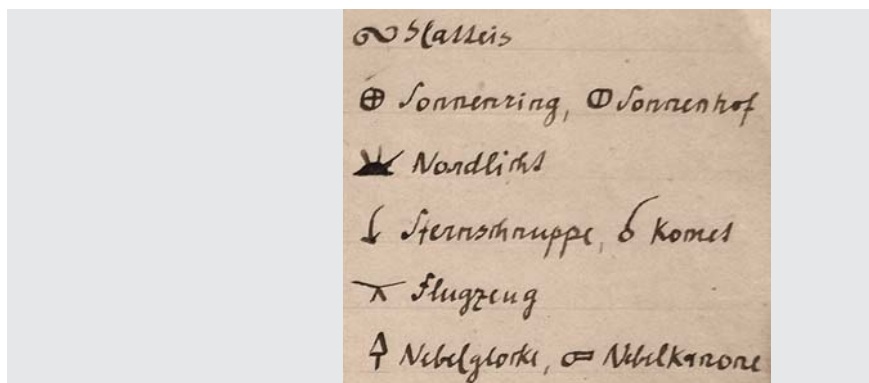 Glatteis
Sonnenring, Sonnenhof
Nordlicht
Sternschnuppe, Komet
Flugzeug
Nebelglocke, Nebelkanone